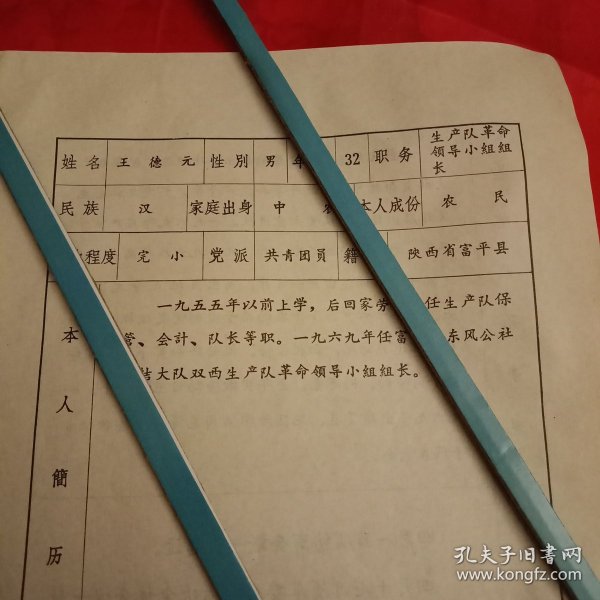 姓名 王德元 性别 男 年 32 职务 生产队革命
领导小組組
长
民族 汉 家庭出身 中 农 本人成份 农民
程度 完小 党派 共青团员 籍 陕西省富平县
本人簡历
一九五五年以前上学，后回家劳 任生产队保
管、会計、队长等职。一九六九年任富 东风公社
结大队双西生产队革命领导小組組长。
孔夫子旧书网
www.kongfz.com